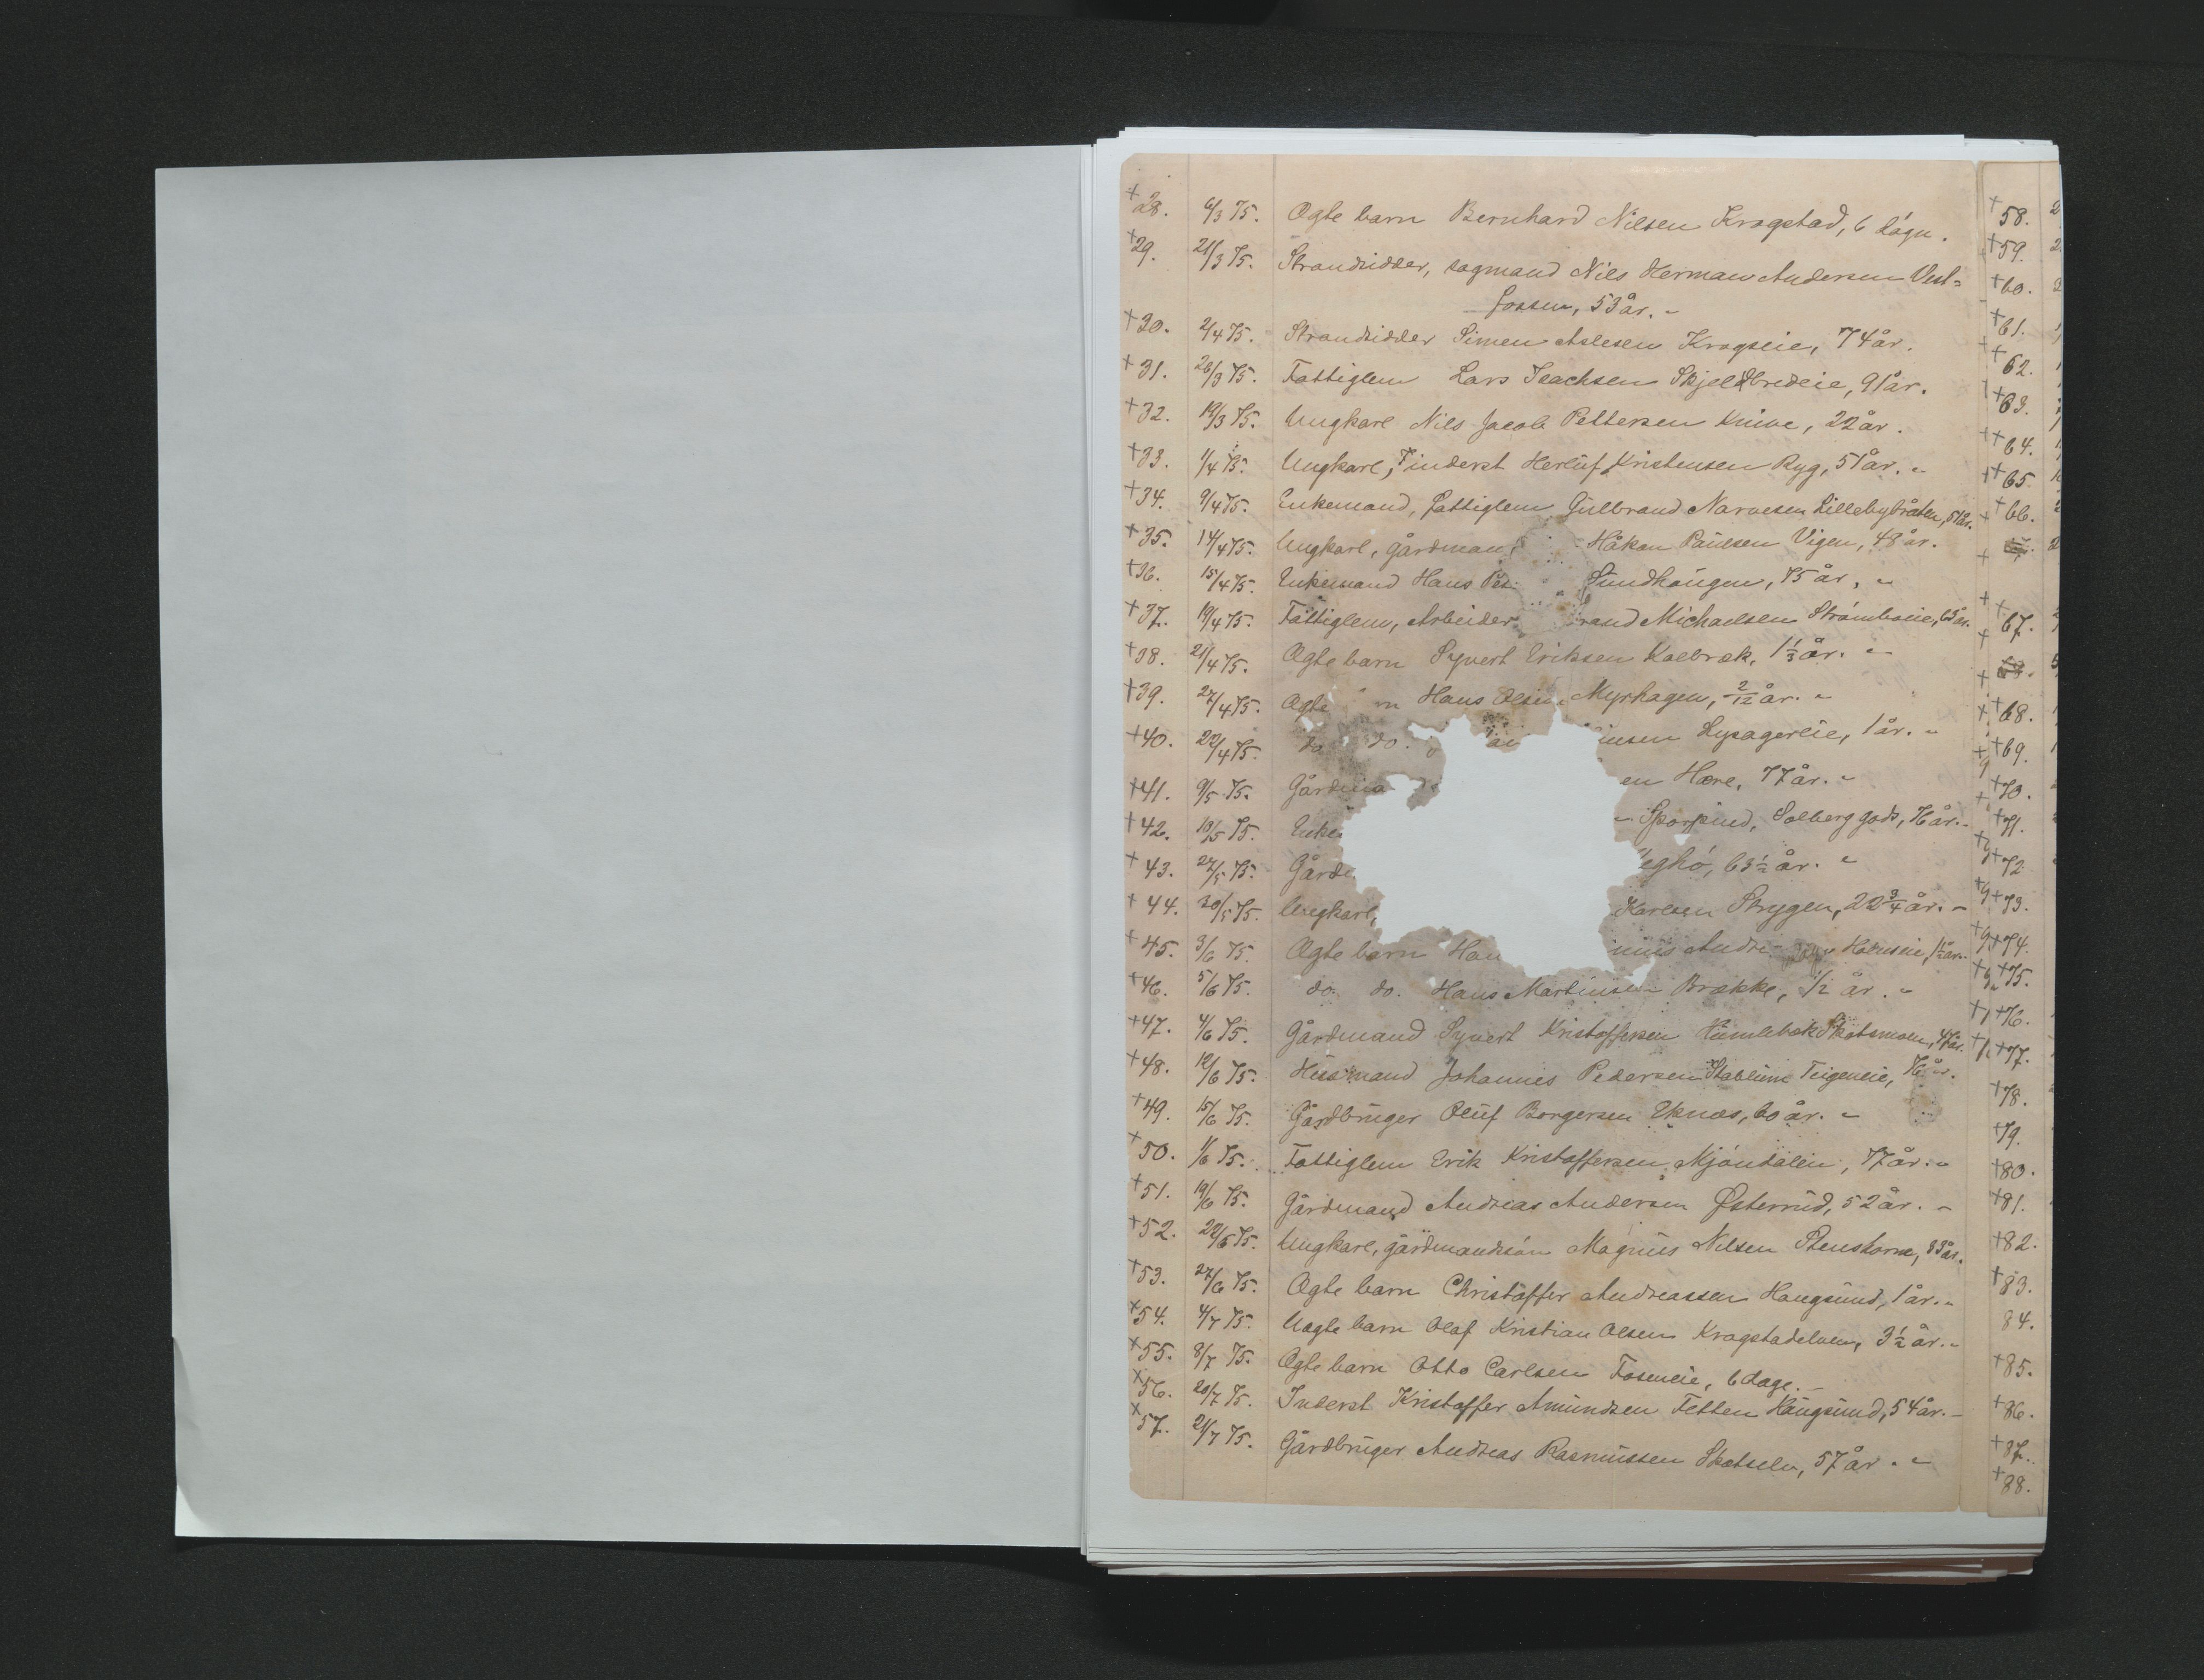 +28. 6/3 75. Ægte barn Bernhard Nilsen Krogstad, 6 døgn.
+29. 21/3 75. Strandsidder, sagmand Nils Herman Andersen Vest=
fossen, 53 år. -
+30. 2/4 75. Strandsidder Simen Aslesen Krogseie, 74 år.
+31. 26/3 75. Fattiglem Lars Isachsen Skjeldbredeie, 91 år.
+32. 19/3 75. Ungkarl Nils Jacob Pettersen Knive, 22 år.
+33. 1/4 75. Ungkarl, Inderst Herluf Kristensen Ryg, 51 år. -
+34. 9/4 75. Enkemand, fattiglem Gulbrand Narvesen Lillebybråten, 51 år.
+35. 14/4 75. Ungkarl, gårdman Håkon Paulsen Vigen, 48 år.
+36. 15/4 75. Enkemand Hans Pe Sundhaugen, 75 år. -
+37. 19/4 75. Fattiglem, Arbeider rand Michaelsen Strømboeie, 65 år.
+38. 21/4 75. Ægte barn Syvert Eriksen Kolbræk, 1 1/3 år. -
+39. 27/4 75. Ægte n Hans Olsen Myrhagen, 2/12 år. -
+40. 22/4 75. do do. insen Lysagereie, 1 år. -
+41. 9/5 75. Gårdma en Hære, 77 år. -
+42. 19/5 75. Enke Sporpind, Solberg gods, 76 år. -
+43. 27/5 75. Gård eghø, 63 1/2 år. -
+44. 30/5 75. Ungkarl, Karlsen Strygen, 22 3/4 år. -
+45. 3/6 75. Ægte barn Han nius Andre Hornseie, 1 1/2 år.
+46. 5/6 75. do. do. Hans Martinsen Brække, 1/2 år. -
+47. 4/6 75. Gårdmand Syvert Kristoffersen Humlebæk Skotsmoen, 47 år.
+48. 12/6 75. Husmand Johannes Pedersen Stablum Teigeneie, 76 år.
+49. 15/6 75. Gårdbruger Oluf Borgersen Eknæs, 60 år. -
+50. 1/6 75. Fattiglem Erik Kristoffersen Mjøndalen, 77 år. -
+51. 19/6 75. Gårdmand Andreas Andersen Østerud, 52 år. -
+52. 22/6 75. Ungkarl, gårdmandssøn Magnus Nilsen Stenshorne, 33 år.
+53. 27/6 75. Ægte barn Christoffer Andreassen Hougsund, 1 år. -
+54. 4/7 75. Uægte barn Olaf Kristian Olsen Krogstadelven, 3 1/2 år. -
+55. 8/7 75. Ægte barn Otto Carlsen Foseneie, 6 dage. -
+56. 20/7 75. Inderst Kristoffer Amundsen Fetten Haugsund, 54 år. -
+57. 21/7 75. Gårdbruger Andreas Rasmussen Skotselv, 57 år. -
+58.
+59.
+60.
+61.
+62.
+63.
+64.
+65.
+66.
+67.
+68.
+69.
+70.
+71.
+72
+73.
+74.
+75.
+76.
+77.
+78.
+79.
+80.
+81.
+82.
+83.
84.
+85.
+86.
+87.
+88.